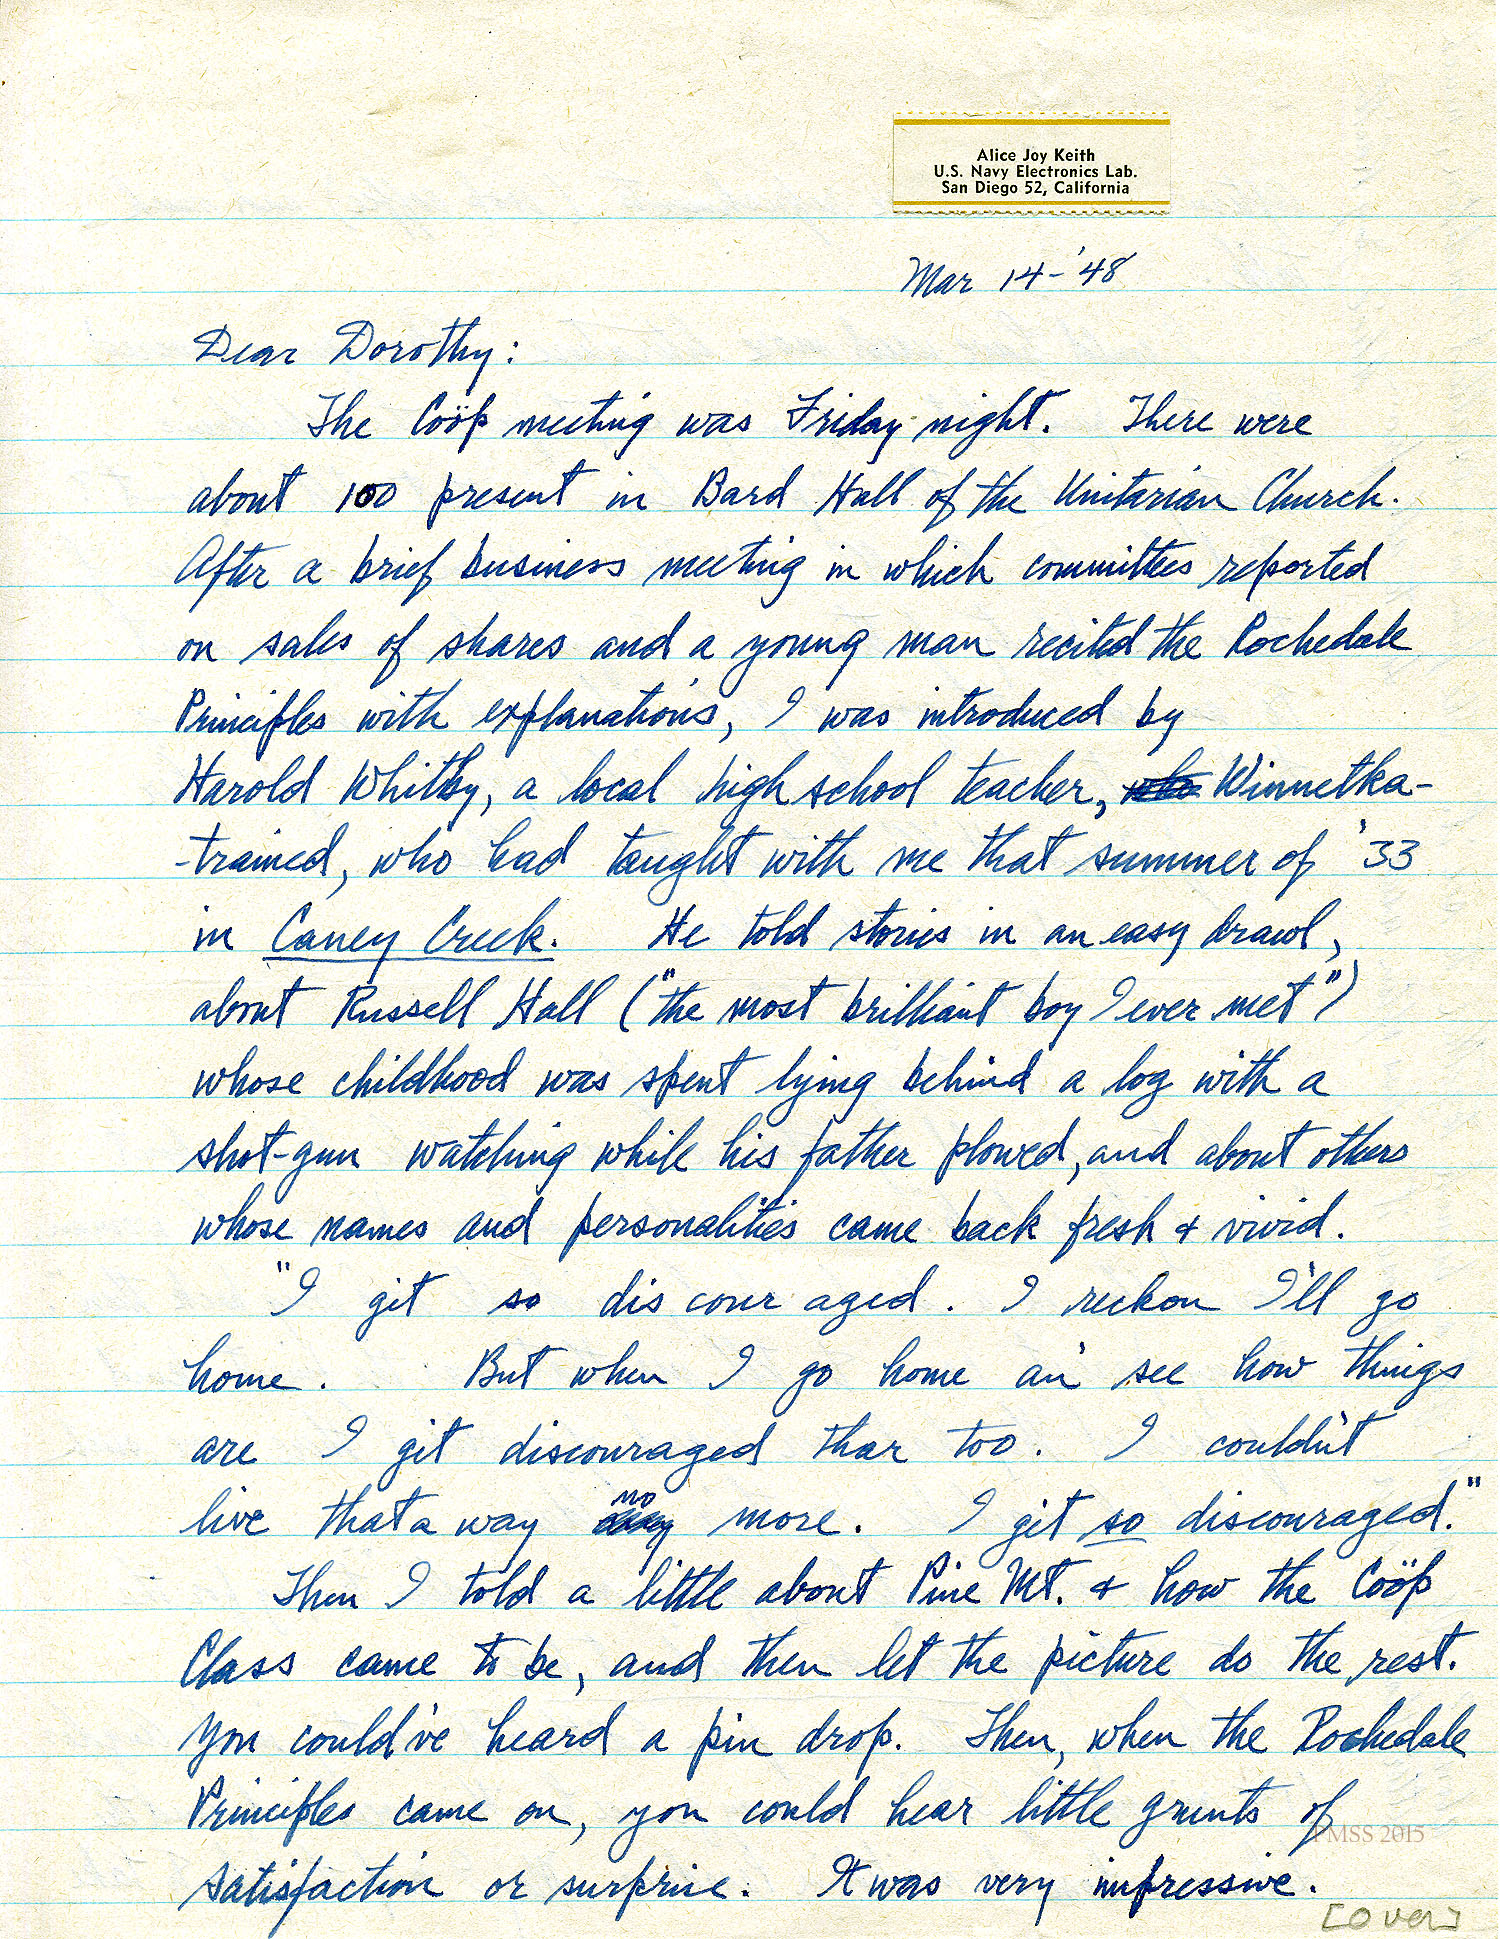 Alice Joy Keith
U.S. Navy Electronics Lab.
San Diego 52, California
Mar 14-'48
Dear Dorothy:
The Coöp meeting was Friday night. There were
about 100 present in Bard Hall of the Unitarian Church.
After a brief business meeting in which committees reported
on sales of shares and a young man recited the Rochedale
Principles with explanations, I was introduced by
Harold Whitby, a local high school teacher, who Winnetka-
-trained, who had taught with me that summer of '33
in Caney Creek. He told stories in an easy drawl,
about Russell Hall ("the most brilliant boy I ever met")
whose childhood was spent lying behind a log with a
shot-gun watching while his father plowed, and about others
whose names and personalities came back fresh & vivid.
"I git so dis cour aged. I reckon I'll go
home. But when I go home an' see how things
are I git discouraged thar too. I couldn't
live thata way no more. I git so discouraged."
Then I told a little about Pine Mt. & how the Coöp
Class came to be, and then let the picture do the rest.
You could've heard a pin drop. Then, when the Rochedale
Principles came on, you could hear little grunts of
satisfaction or surprise. It was very impressive.
PMSS 2015
[over]